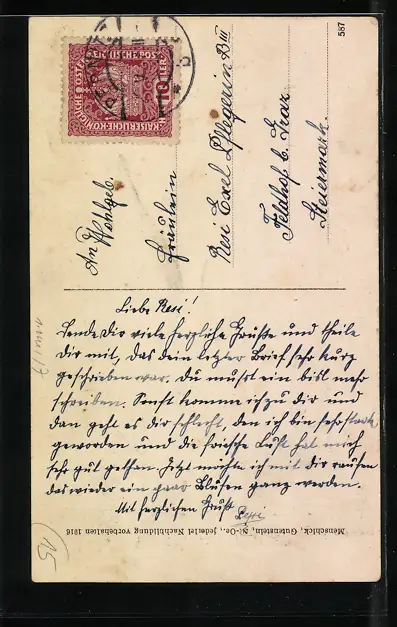 KAISERLICHE KÖNIGLICHE ÖSTERREICHISCHE POST
10 HELLER
587
An Wohlgeb.
Fräulein
Resi Exel Pflegerin B III
Feldhof b. Graz
Steiermark.
Liebe Resi!
Sende Dir viele herzliche Grüße und theile
Dir mit, das dein letzter Brief sehr kurz
geschrieben war. Du mußt ein bisl mehr
schreiben. Sonst komme ich zu dir und
dan geht es dir schlecht, den ich bin sehr stark
geworden und die frische Luft hat mich
sehr gut gethan. Jetzt möchte ich mit dir raufen
das wieder ein paar Blusen ganz werden.
Mit herzlichen Gruß
Menschick, Gutenstein, N.-Oe., jederlei Nachbildung vorbehalten 1916
15